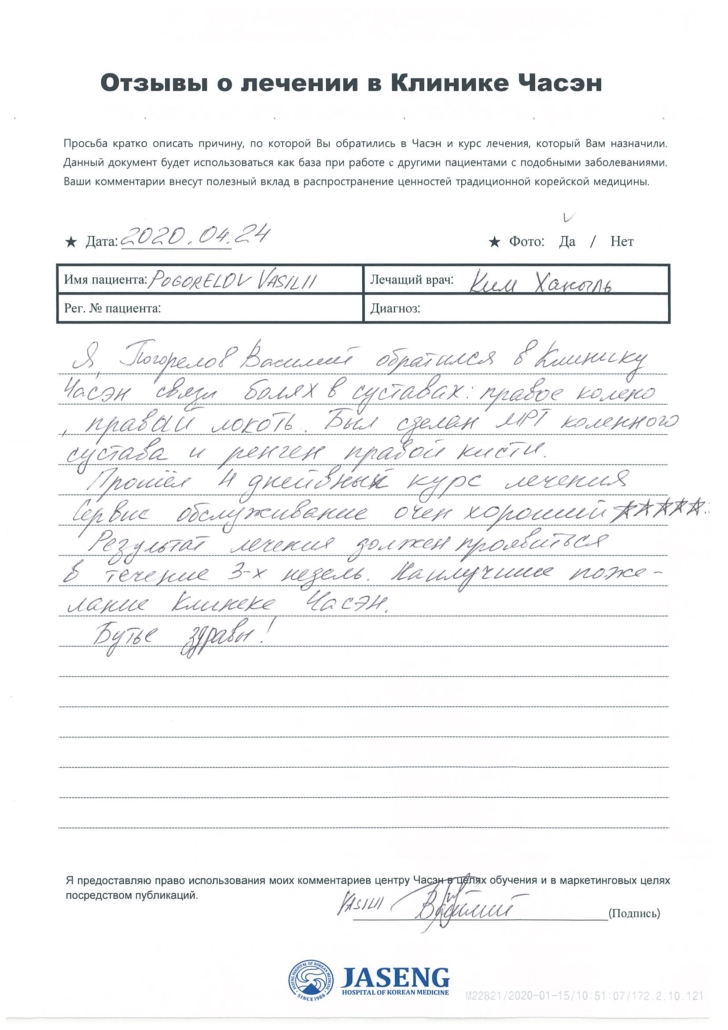 Отзывы о лечении в Клинике Часэн
Просьба кратко описать причину, по которой Вы обратились в Часэн и курс лечения, который Вам назначили.
Данный документ будет использоваться как база при работе с другими пациентами с подобными заболеваниями.
Ваши комментарии внесут полезный вклад в распространение ценностей традиционной корейской медицины.
★ Дата: 2020.04.24 ★ Фото: Да / Нет
Имя пациента: POGORELOV VASILII Лечащий врач: Ким Ханыль
Рег. № пациента: Диагноз:
Я, Погорелов Василий обратился в Клинику
Часэн связи болях в суставах: правое колено
, правый локоть. Был сделан МРТ коленного
сустава и ренген правой кисти.
Прошёл 4 дневный курс лечения
Сервис обслуживание очен хороший ★★★★★.
Результат лечения должен проявиться
в течение 3-х недель. Наилучшие поже-
лание Клинеке Часэн.
Бутье здравы!
Я предоставляю право использования моих комментариев центру Часэн в целях обучения и в маркетинговых целях
посредством публикаций.
VASILII Василий (Подпись)
JASENG
HOSPITAL OF KOREAN MEDICINE
SINCE 1988
M22821/2020-01-15/10:51:07/172.2.10.121